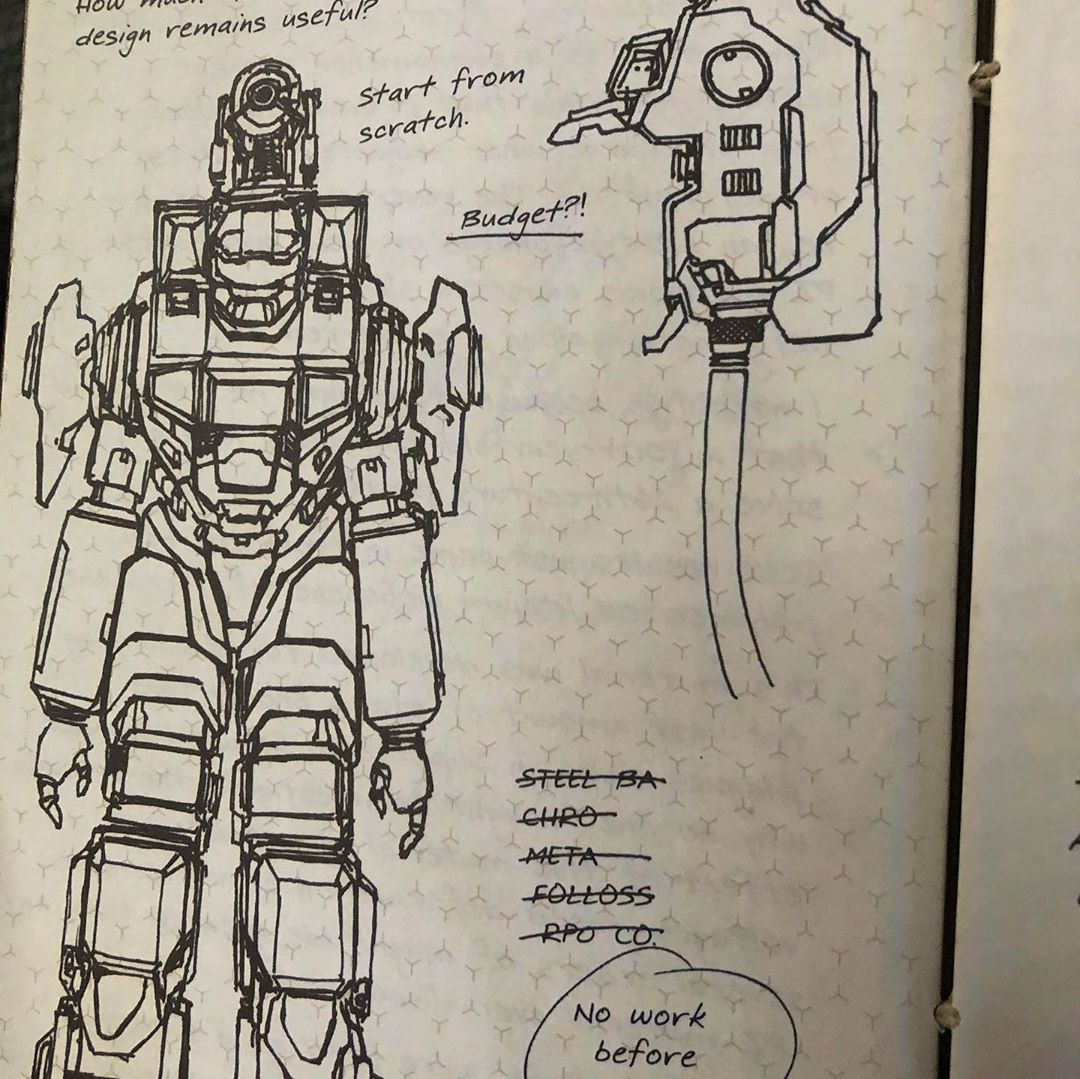 How much
design remains useful?
Start from
scratch.
Budget?!
STEEL BA
CHRO
META
FOLLOSS
RPO CO.
No work
before